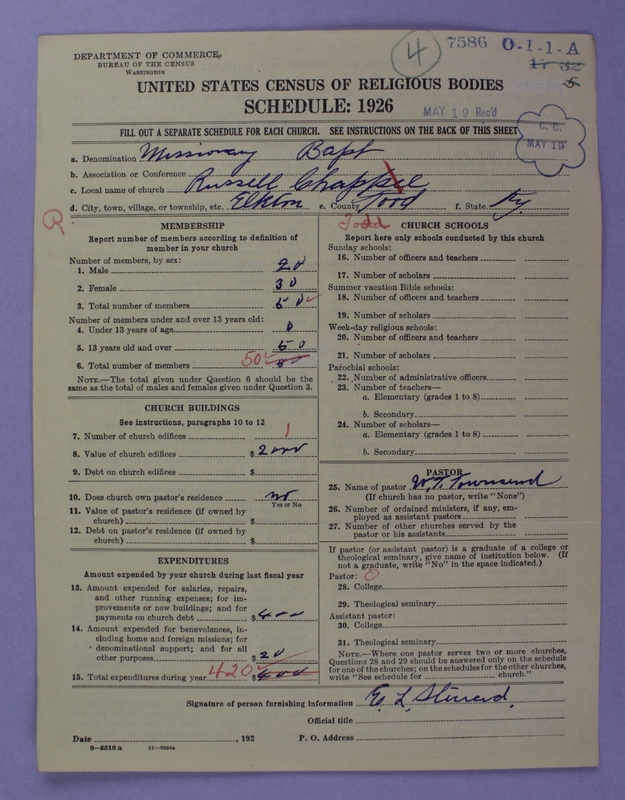 4 7586 O-1-1-A
DEPARTMENT OF COMMERCE
BUREAU OF THE CENSUS
WASHINGTON
17 32
5
UNITED STATES CENSUS OF RELIGIOUS BODIES
SCHEDULE: 1926
MAY 19 Rec'd
FILL OUT A SEPARATE SCHEDULE FOR EACH CHURCH. SEE INSTRUCTIONS ON THE BACK OF THIS SHEET
C. C.
MAY 19
a. Denomination Missionary Bapt
b. Association or Conference
c. Local name of church Russell Chapple
d. City, town, village, or township, etc. Elkton e. County Todd f. State Ky
R.
Todd
MEMBERSHIP
Report number of members according to definition of
member in your church
Number of members, by sex:
1. Male 20
2. Female 30
3. Total number of members 50
Number of members under and over 13 years old:
4. Under 13 years of age 0
5. 13 years old and over 50
6. Total number of members 50 50
NOTE.—The total given under Question 6 should be the
same as the total of males and females given under Question 3.
CHURCH BUILDINGS
See instructions, paragraphs 10 to 12
7. Number of church edifices 1
8. Value of church edifices $ 2000
9. Debt on church edifices $
10. Does church own pastor's residence no
Yes or No
11. Value of pastor's residence (if owned by
church) $
12. Debt on pastor's residence (if owned by
church) $
EXPENDITURES
Amount expended by your church during last fiscal year
13. Amount expended for salaries, repairs,
and other running expenses; for im-
provements or new buildings; and for
payments on church debt $ 400
14. Amount expended for benevolences, in-
cluding home and foreign missions; for
denominational support; and for all
other purposes $ 20
15. Total expenditures during year 420 $ 400
CHURCH SCHOOLS
Report here only schools conducted by this church
Sunday schools:
16. Number of officers and teachers
17. Number of scholars
Summer vacation Bible schools:
18. Number of officers and teachers
19. Number of scholars
Week-day religious schools:
20. Number of officers and teachers
21. Number of scholars
Parochial schools:
22. Number of administrative officers
23. Number of teachers—
a. Elementary (grades 1 to 8)
b. Secondary
24. Number of scholars—
a. Elementary (grades 1 to 8)
b. Secondary
PASTOR
25. Name of pastor W. T. Townsend
(If church has no pastor, write "None")
26. Number of ordained ministers, if any, em-
ployed as assistant pastors
27. Number of other churches served by the
pastor or his assistants
If pastor (or assistant pastor) is a graduate of a college or
theological seminary, give name of institution below. (If
not a graduate, write "No" in the space indicated.)
Pastor: O
28. College
29. Theological seminary
Assistant pastor:
30. College
31. Theological seminary
NOTE.—Where one pastor serves two or more churches,
Questions 28 and 29 should be answered only on the schedule
for one of the churches; on the schedules for the other churches,
write "See schedule for church."
Signature of person furnishing information E. L.
Official title
Date , 192 P. O. Address
8—5518 a